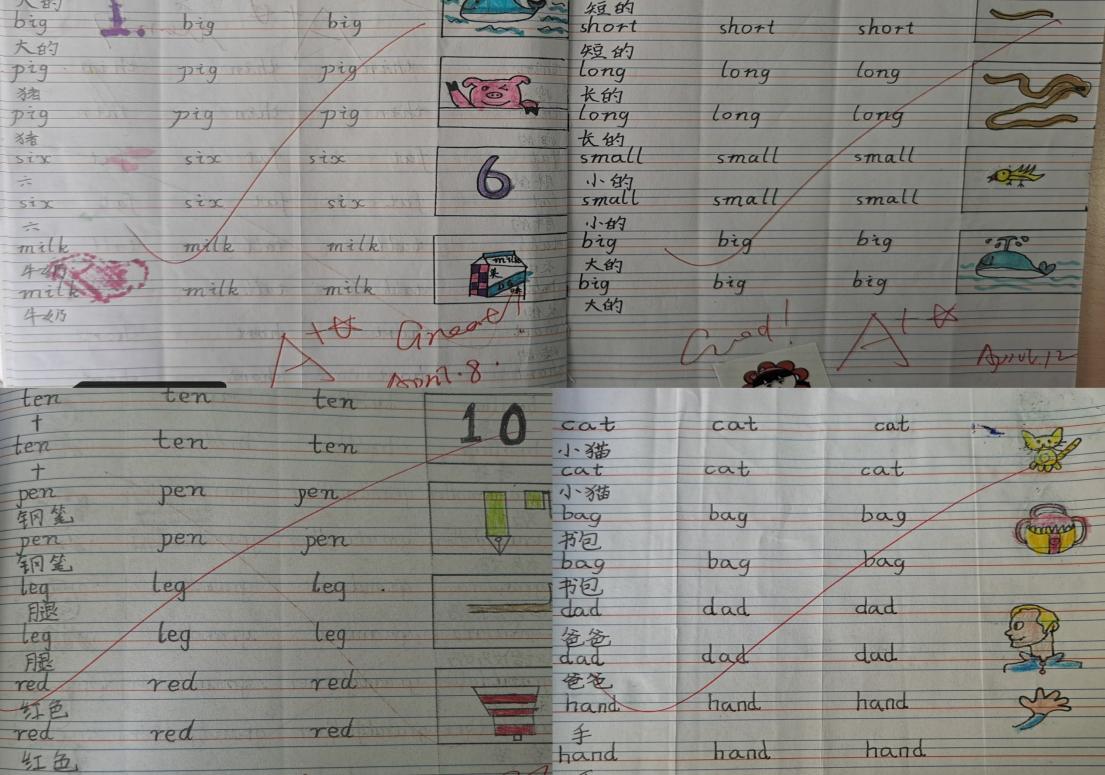 大的
big big big
大的
pig pig pig
猪
pig pig pig
猪
six six six
六
six six six
六
milk milk milk
牛奶
milk milk milk
牛奶
1.
6
milk
A+ Great
April.8.
短的
short short short
短的
long long long
长的
long long long
长的
small small small
小的
small small small
小的
big big big
大的
big big big
大的
Good! A+
April.12
ten ten ten
十
ten ten ten
十
pen pen pen
钢笔
pen pen pen
钢笔
leg leg leg
腿
leg leg leg
腿
red red red
红色
red red red
红色
10
cat cat cat
小猫
cat cat cat
小猫
bag bag bag
书包
bag bag bag
书包
dad dad dad
爸爸
dad dad dad
爸爸
hand hand hand
手
hand hand hand